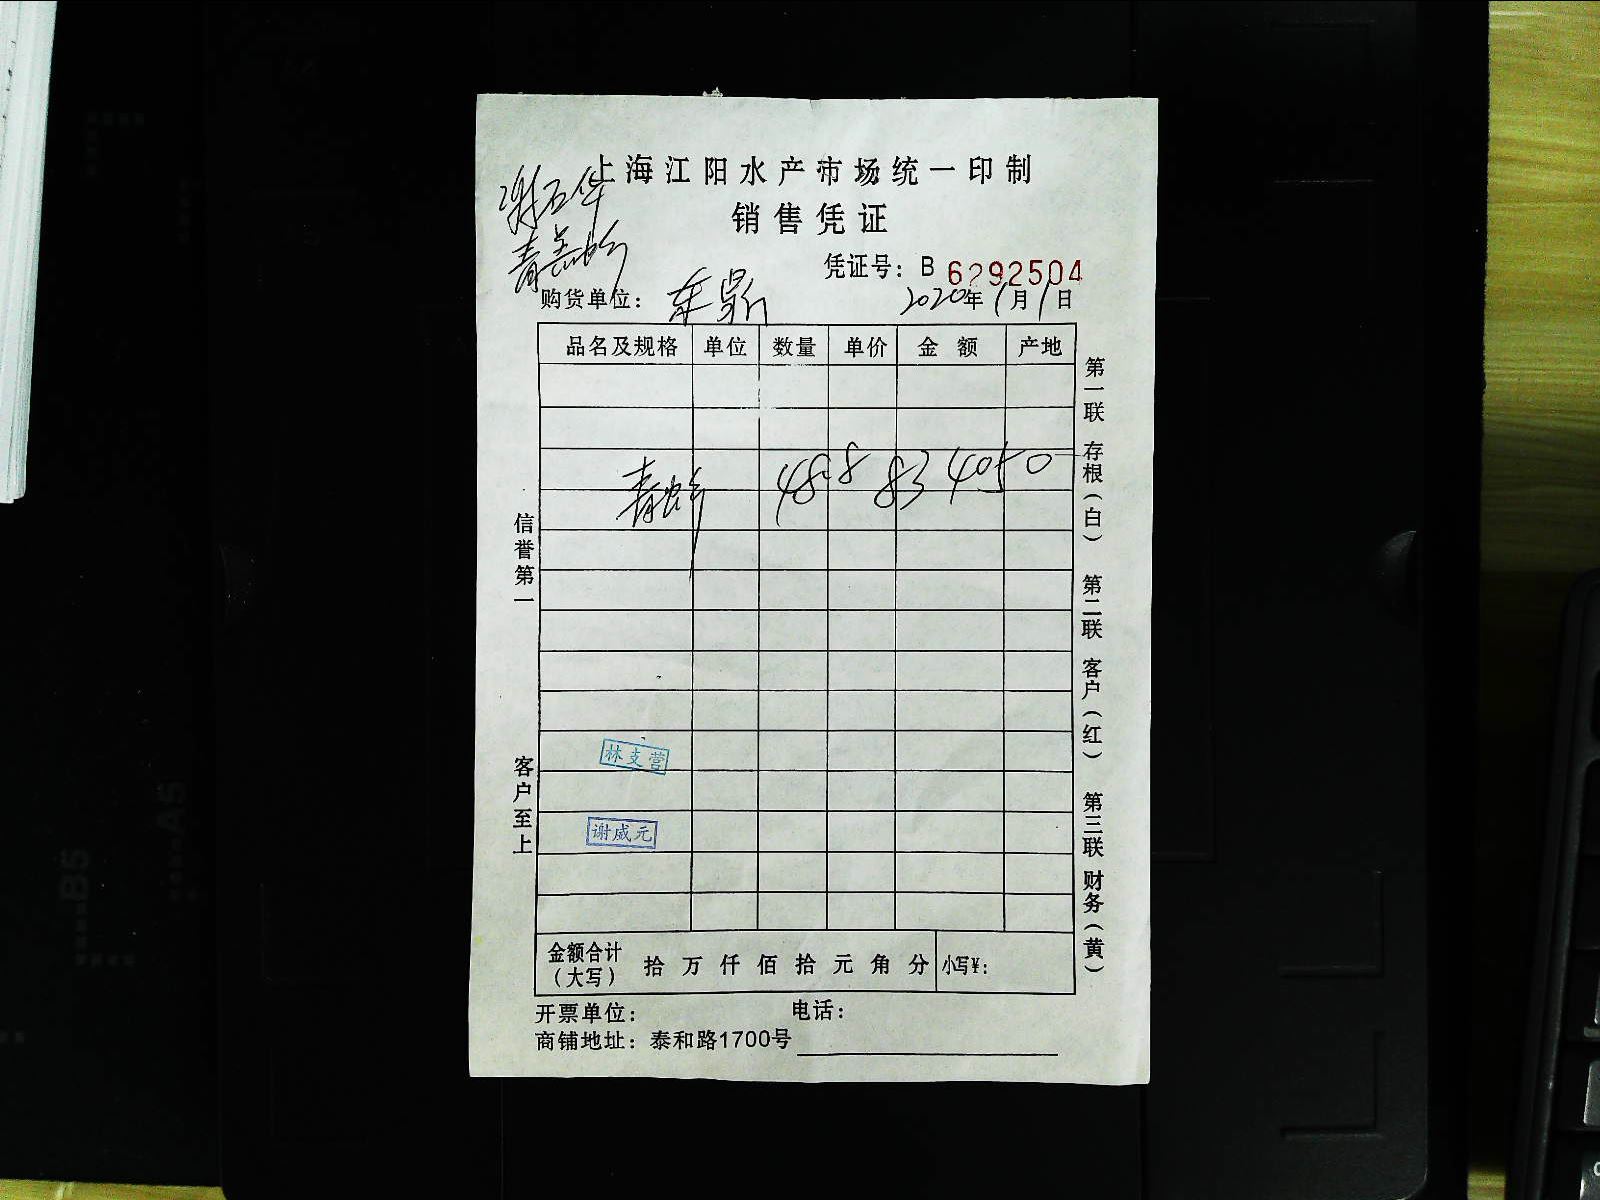 上海江阳水产市场统一印制
销售凭证
谢石华
凭证号：B 6292504
购货单位：东
2020年1月1日
品名及规格 单位 数量 单价 金额 产地
青 48.8 83 4050
信誉第一
客户至上
第一联 存根（白） 第二联 客户（红） 第三联 财务（黄）
林支营
谢威元
金额合计（大写） 拾 万 仟 佰 拾 元 角 分 小写¥：
开票单位： 电话：
商铺地址：泰和路1700号